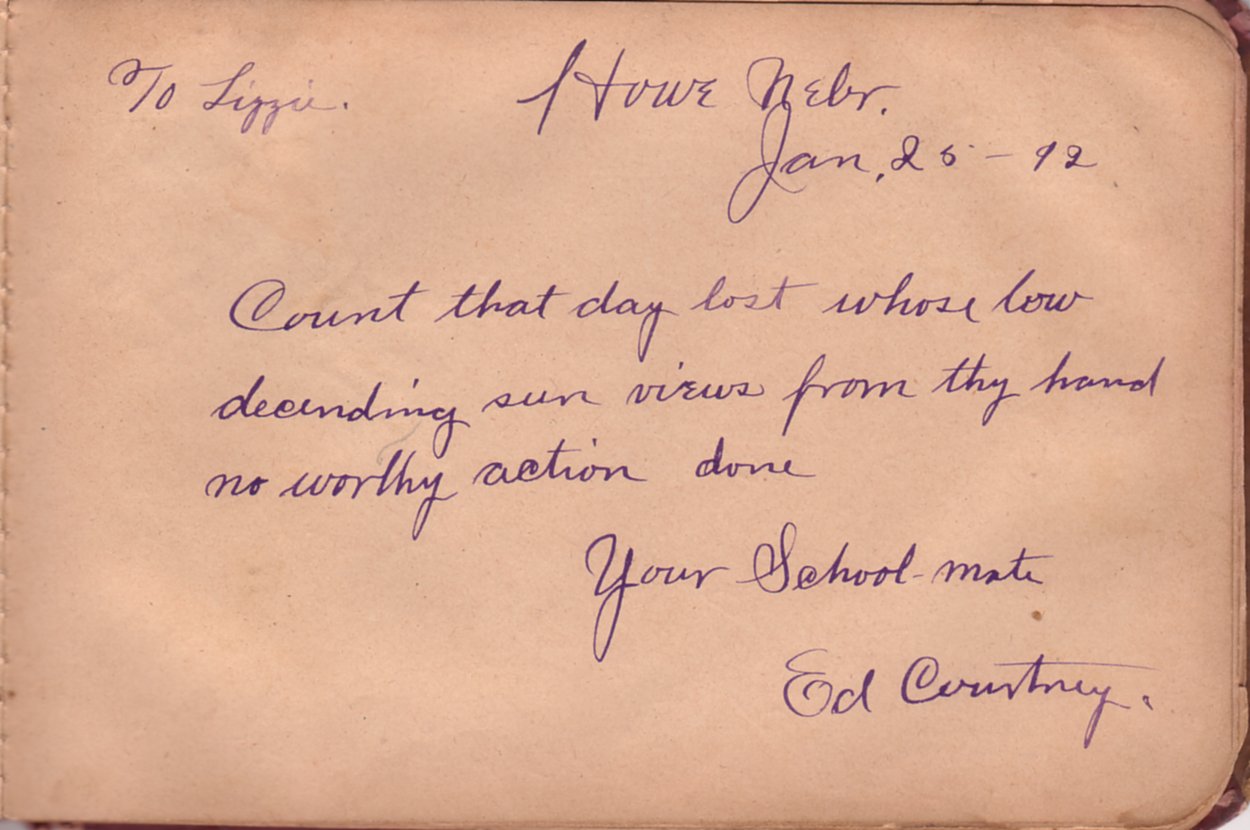 To Lizzie.
Howe Nebr.
Jan, 25 - 92
Count that day lost whose low
decending sun views from thy hand
no worthy action done
Your School-mate
Ed Courtney.